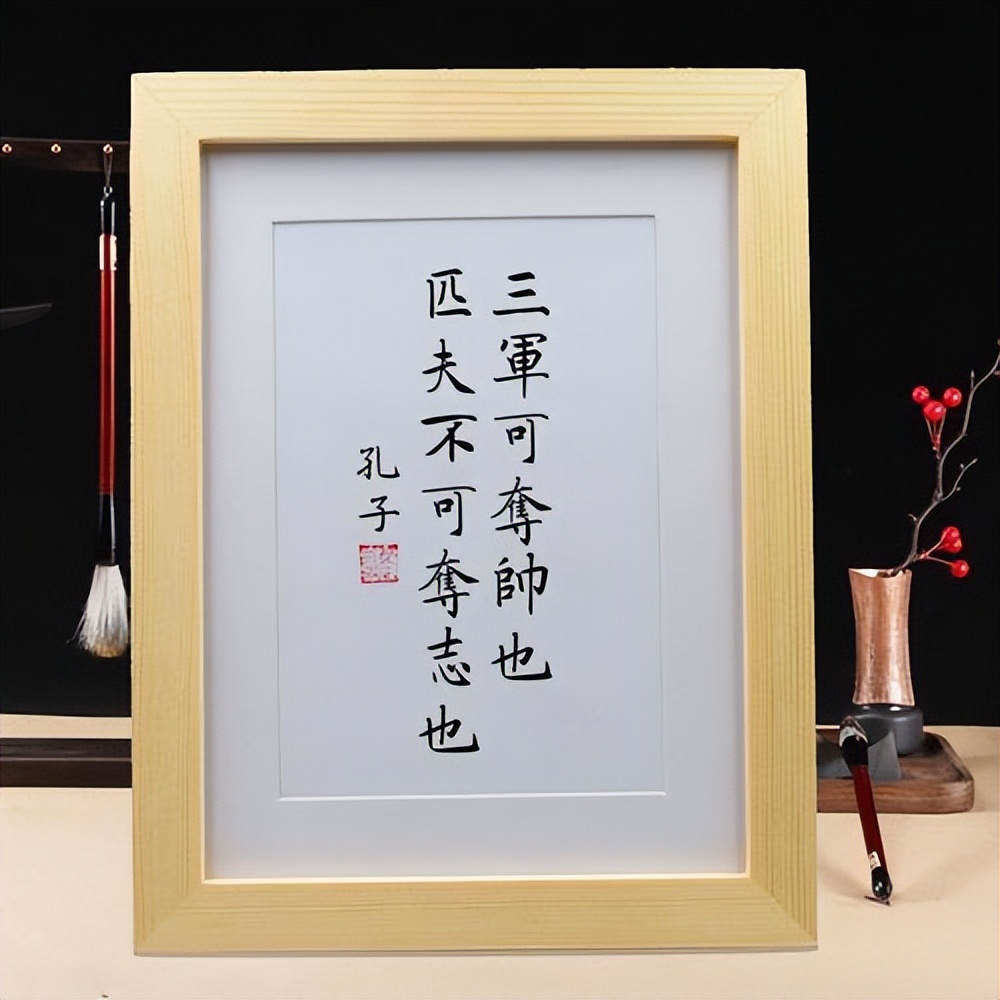 三軍可奪帥也
匹夫不可奪志也
孔子